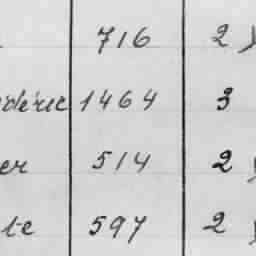 716 2
dérie 1464 3
er 514 2
te 597 2